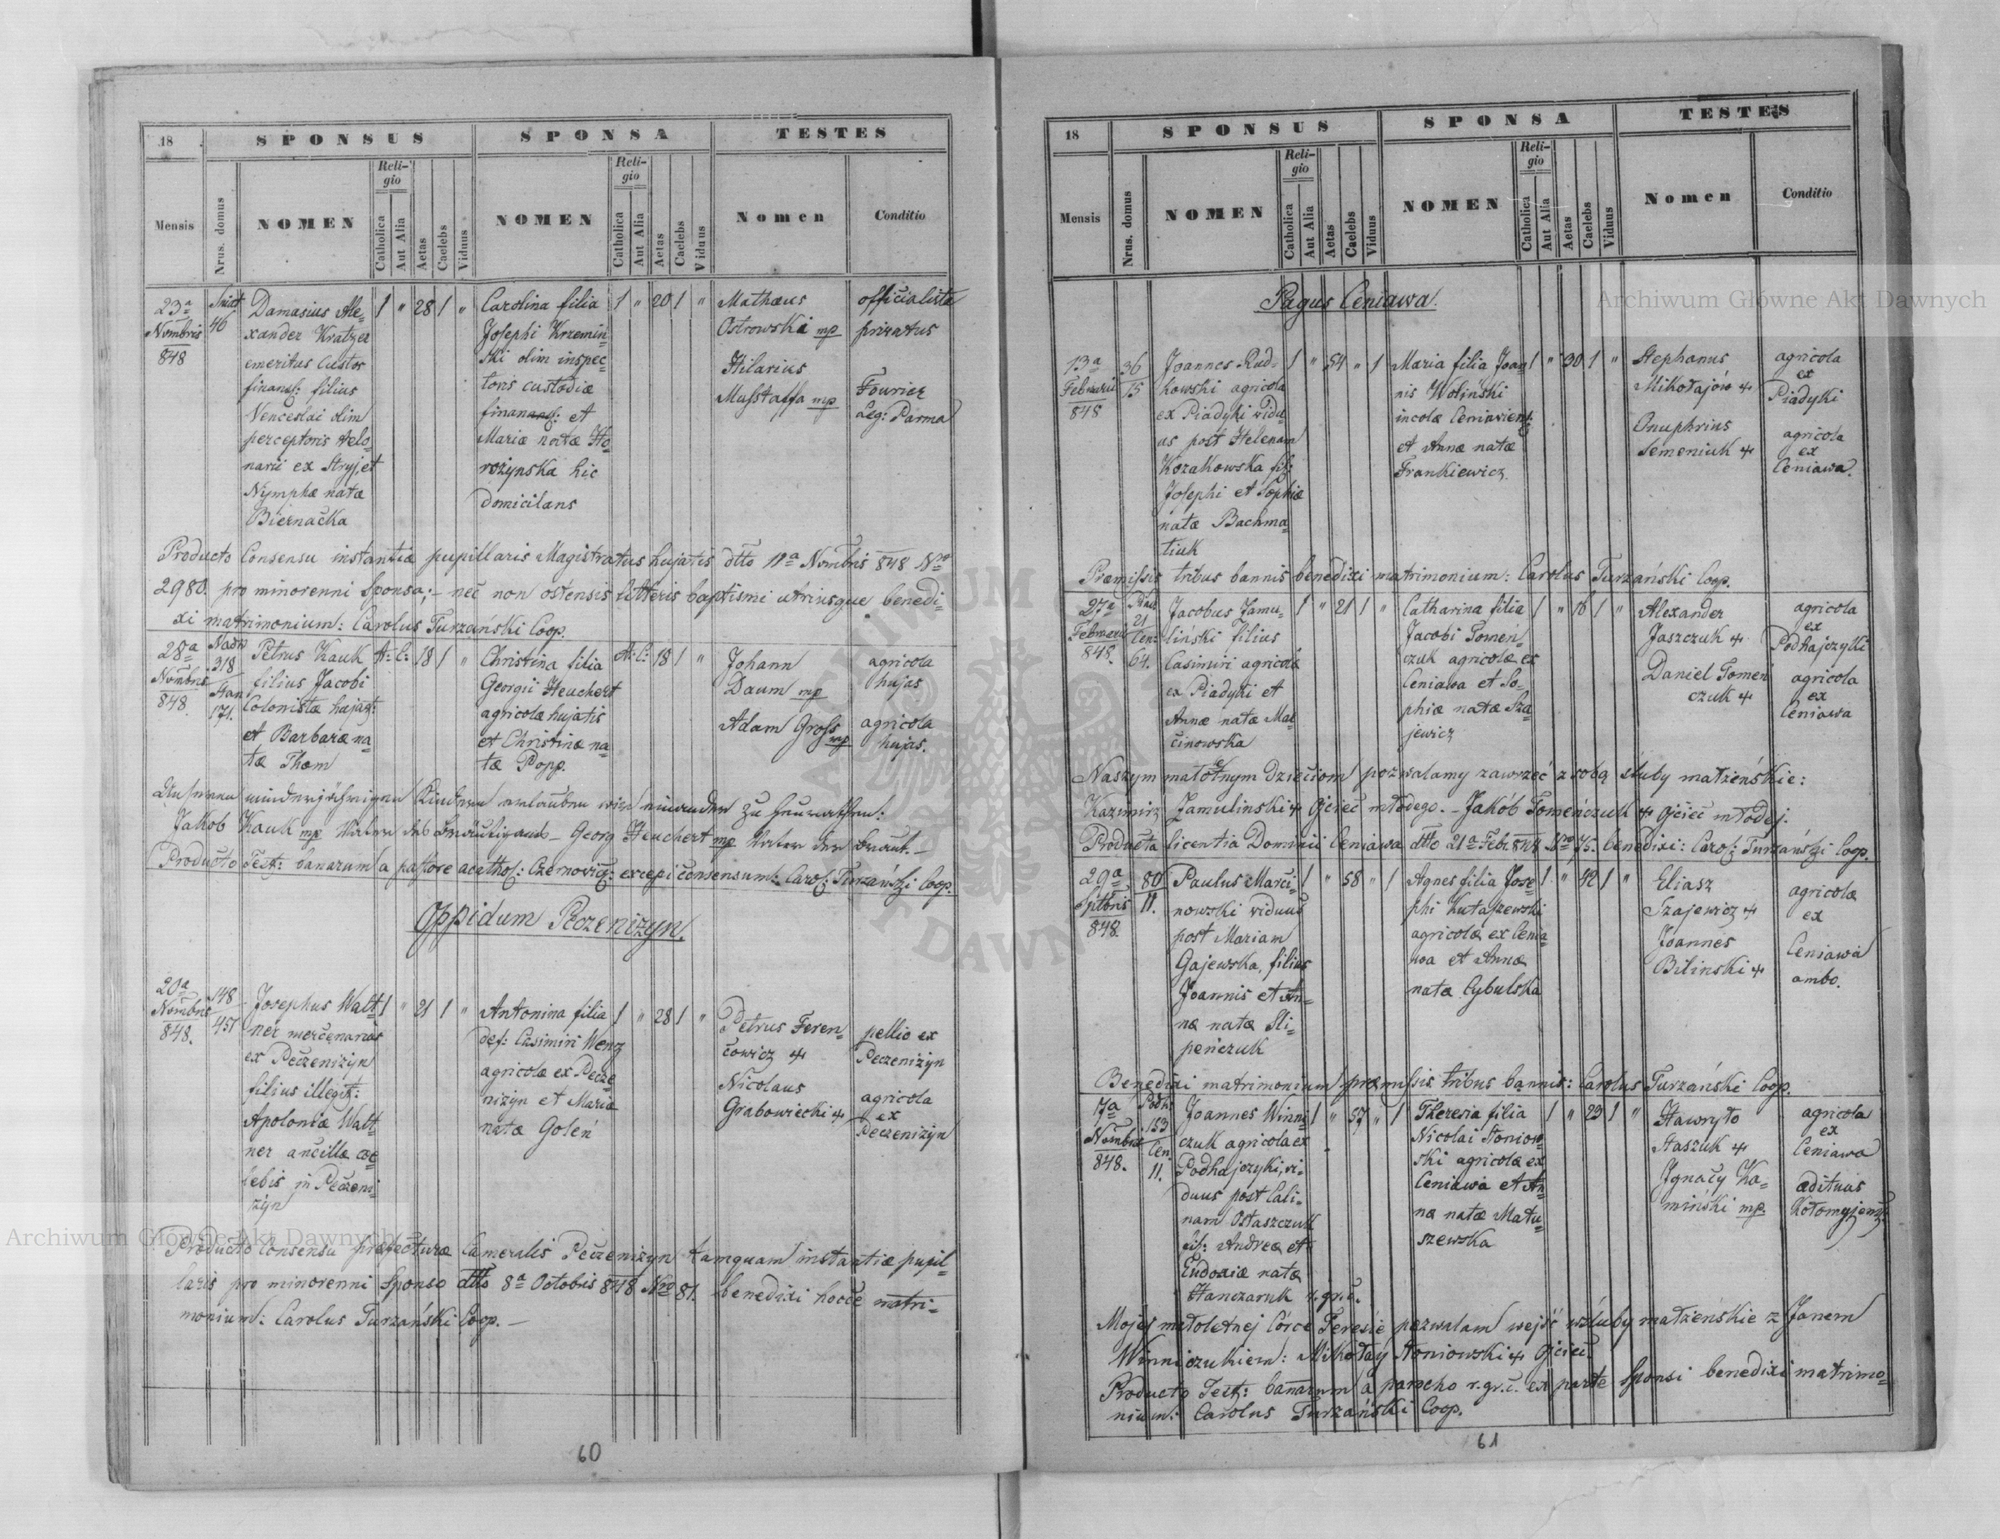 18
SPONSUS
SPONSA
TESTES
Mensis
Nrus. domus
NOMEN
Religio
Catholica
Aut Alia
Aetas
Caelebs
Viduus
NOMEN
Religio
Catholica
Aut Alia
Aetas
Caelebs
Viduus
Nomen
Conditio
23a
Nombris
848
46
Damasius Ale=
xander Kratzer
emeritus custos
filius
Venceslai olim
perceptoris telo
narii ex Stryj et
Nymphæ natæ
Biernacka
1 " 28 1 "
Carolina filia
Josephi Krzemin=
ski olim inspec=
toris custodiæ
et
Mariæ natæ Ho
rożynska hic
domicilans
1 " 20 1 "
Mathæus
Ostrowski mp
Hilarius
Mustaffa mp
officialista
privatus
Fourier
Leg: Parma
Producto Consensu instantiæ pupillaris Magistratus hujatis dtto 11a Nombris 848 Nro
2980. pro minorenni Sponsa; nec non ostensis litteris baptismi utriusque benedi=
xi matrimonium: Carolus Turzański Coop.
28a
Nombris
848.
Nadw
318
Stan
171.
Petrus Kauk
filius Jacobi
Colonistæ hujat:
et Barbaræ na=
tæ Thom
A: C: 18 1 "
Christina filia
Georgii Heuchert
agricolæ hujatis
et Christinæ na=
tæ Popp.
A: C: 18 1 "
Johann
Daum mp
Adam Gross
mp
agricola
hujas
agricola
hujas.
Unseren minderjährigen Kindern erlauben wir einander zu heurathen:
Jakob Kauk mp Vater des Bräutigams – Georg Heuchert mp Vater der Braut.–
Producto Test: banarum a pastore acathol: Czernovic: excepi consensum: Carol: Turzański Coop.
Oppidum Peczeniżyn.
20a
Nombris
848.
148
457
Josephus Walt
ner mercenarius
ex Peczeniżyn
filius illegit:
Apoloniæ Walt=
ner ancillæ cæ
lebis in Peczeni
żyn
1 " 21 1 "
Antonina filia
def: Casimiri Wenz
agricolæ ex Pecze
niżyn et Mariæ
natæ Goleń
1 " 28 1 "
Petrus Feren=
cowicz +
Nicolaus
Grabowiecki +
pellio ex
Peczeniżyn
agricola
ex
Peczeniżyn
Producto Consensu præfecturæ Cameralis Peczeniżyn tamquam instantiæ pupil=
laris pro minorenni Sponso dtto 8a Octobris 848 Nro 81. benedixi hocce matri=
monium: Carolus Turzański Coop.–
60
18
SPONSUS
SPONSA
TESTES
Mensis
Nrus. domus
NOMEN
Religio
Catholica
Aut Alia
Aetas
Caelebs
Viduus
NOMEN
Religio
Catholica
Aut Alia
Aetas
Caelebs
Viduus
Nomen
Conditio
Pagus Ceniawa.
13a
Februarii
848
36
15
Joannes Rud=
kowski agricola
ex Piadyki vidu
us post Helenam
Kozakowska fil:
Josephi et Sophiæ
natæ Bachma=
tiuk
1 " 54 " 1
Maria filia Joan
nis Woliński
incolæ Ceniavien:
et Annæ natæ
Frankiewicz
1 " 30 1 "
Stephanus
Mikołajów +
Onuphrius
Semeniuk +
agricola
ex
Piadyki
agricola
ex
Ceniawa.
Præmissis tribus bannis benedixi matrimonium: Carolus Turzański Coop.
27a
Februarii
848.
21
Cen:
64.
Jacobus Jamu=
liński filius
Casimiri agricolæ
ex Piadyki et
Annæ natæ Mar
cinowska
1 " 21 1 "
Catharina filia
Jacobi Tomeń
czuk agricolæ ex
Ceniawa et So=
phiæ natæ Sza
jewicz
1 " 16 1 "
Alexander
Jaszczuk +
Daniel Tomeń
czuk +
agricola
ex
Podhajczyki
agricola
ex
Ceniawa
Naszym małoletnym dzieciom pozwalamy zawrzeć z sobą śluby małżeńskie:
Kazimirz Jamulinski + Ojciec młodego.– Jakób Tomeńczuk + Ojciec młodej.
Producta licentia Dominii Ceniawa dtto 21a Febr 848 Nro 75. benedixi: Carol: Turzański Coop.
29a
Sptbris
848.
80
11.
Paulus Marci=
nowski viduus
post Mariam
Gajewska, filius
Joannis et An=
næ natæ Sli=
peńczuk
1 " 58 " 1
Agnes filia Jose=
phi Kutaszewski
agricolæ ex Cenia
wa et Annæ
natæ Cybulska
1 " 42 1 "
Eliasz
Szajewicz +
Joannes
Bilinski +
agricolæ
ex
Ceniawa
ambo.
Benedixi matrimonium præmissis tribus bannis: Carolus Turzański Coop.
17a
Nombris
848.
Podh:
153
Cen.
11.
Joannes Winni
czuk agricola ex
Podhajczyki, vi=
duus post Cali=
nam Ostaszczuk
fil: Andreæ et
Eudoxiæ natæ
Hanczaruk r. gr. c.
1 " 57 " 1
Theresia filia
Nicolai Stoniow
ski agricolæ ex
Ceniawa et An=
næ natæ Matu=
szewska
1 " 23 1 "
Hawryło
Staszuk +
Ignacy Ka=
miński mp.
agricola
ex
Ceniawa
ædituus
Kołomyjensis
Mojej małoletnej Córce Teresie pozwalam wejść w śluby małżeńskie z Janem
Winniczukiem: Mikołay Stoniowski + Ojciec.
Producto Test: banarum a parocho r. gr. c. ex parte Sponsi benedixi matrimo=
nium: Carolus Turzański Coop.
61
Archiwum Główne Akt Dawnych
Archiwum Główne Akt Dawnych